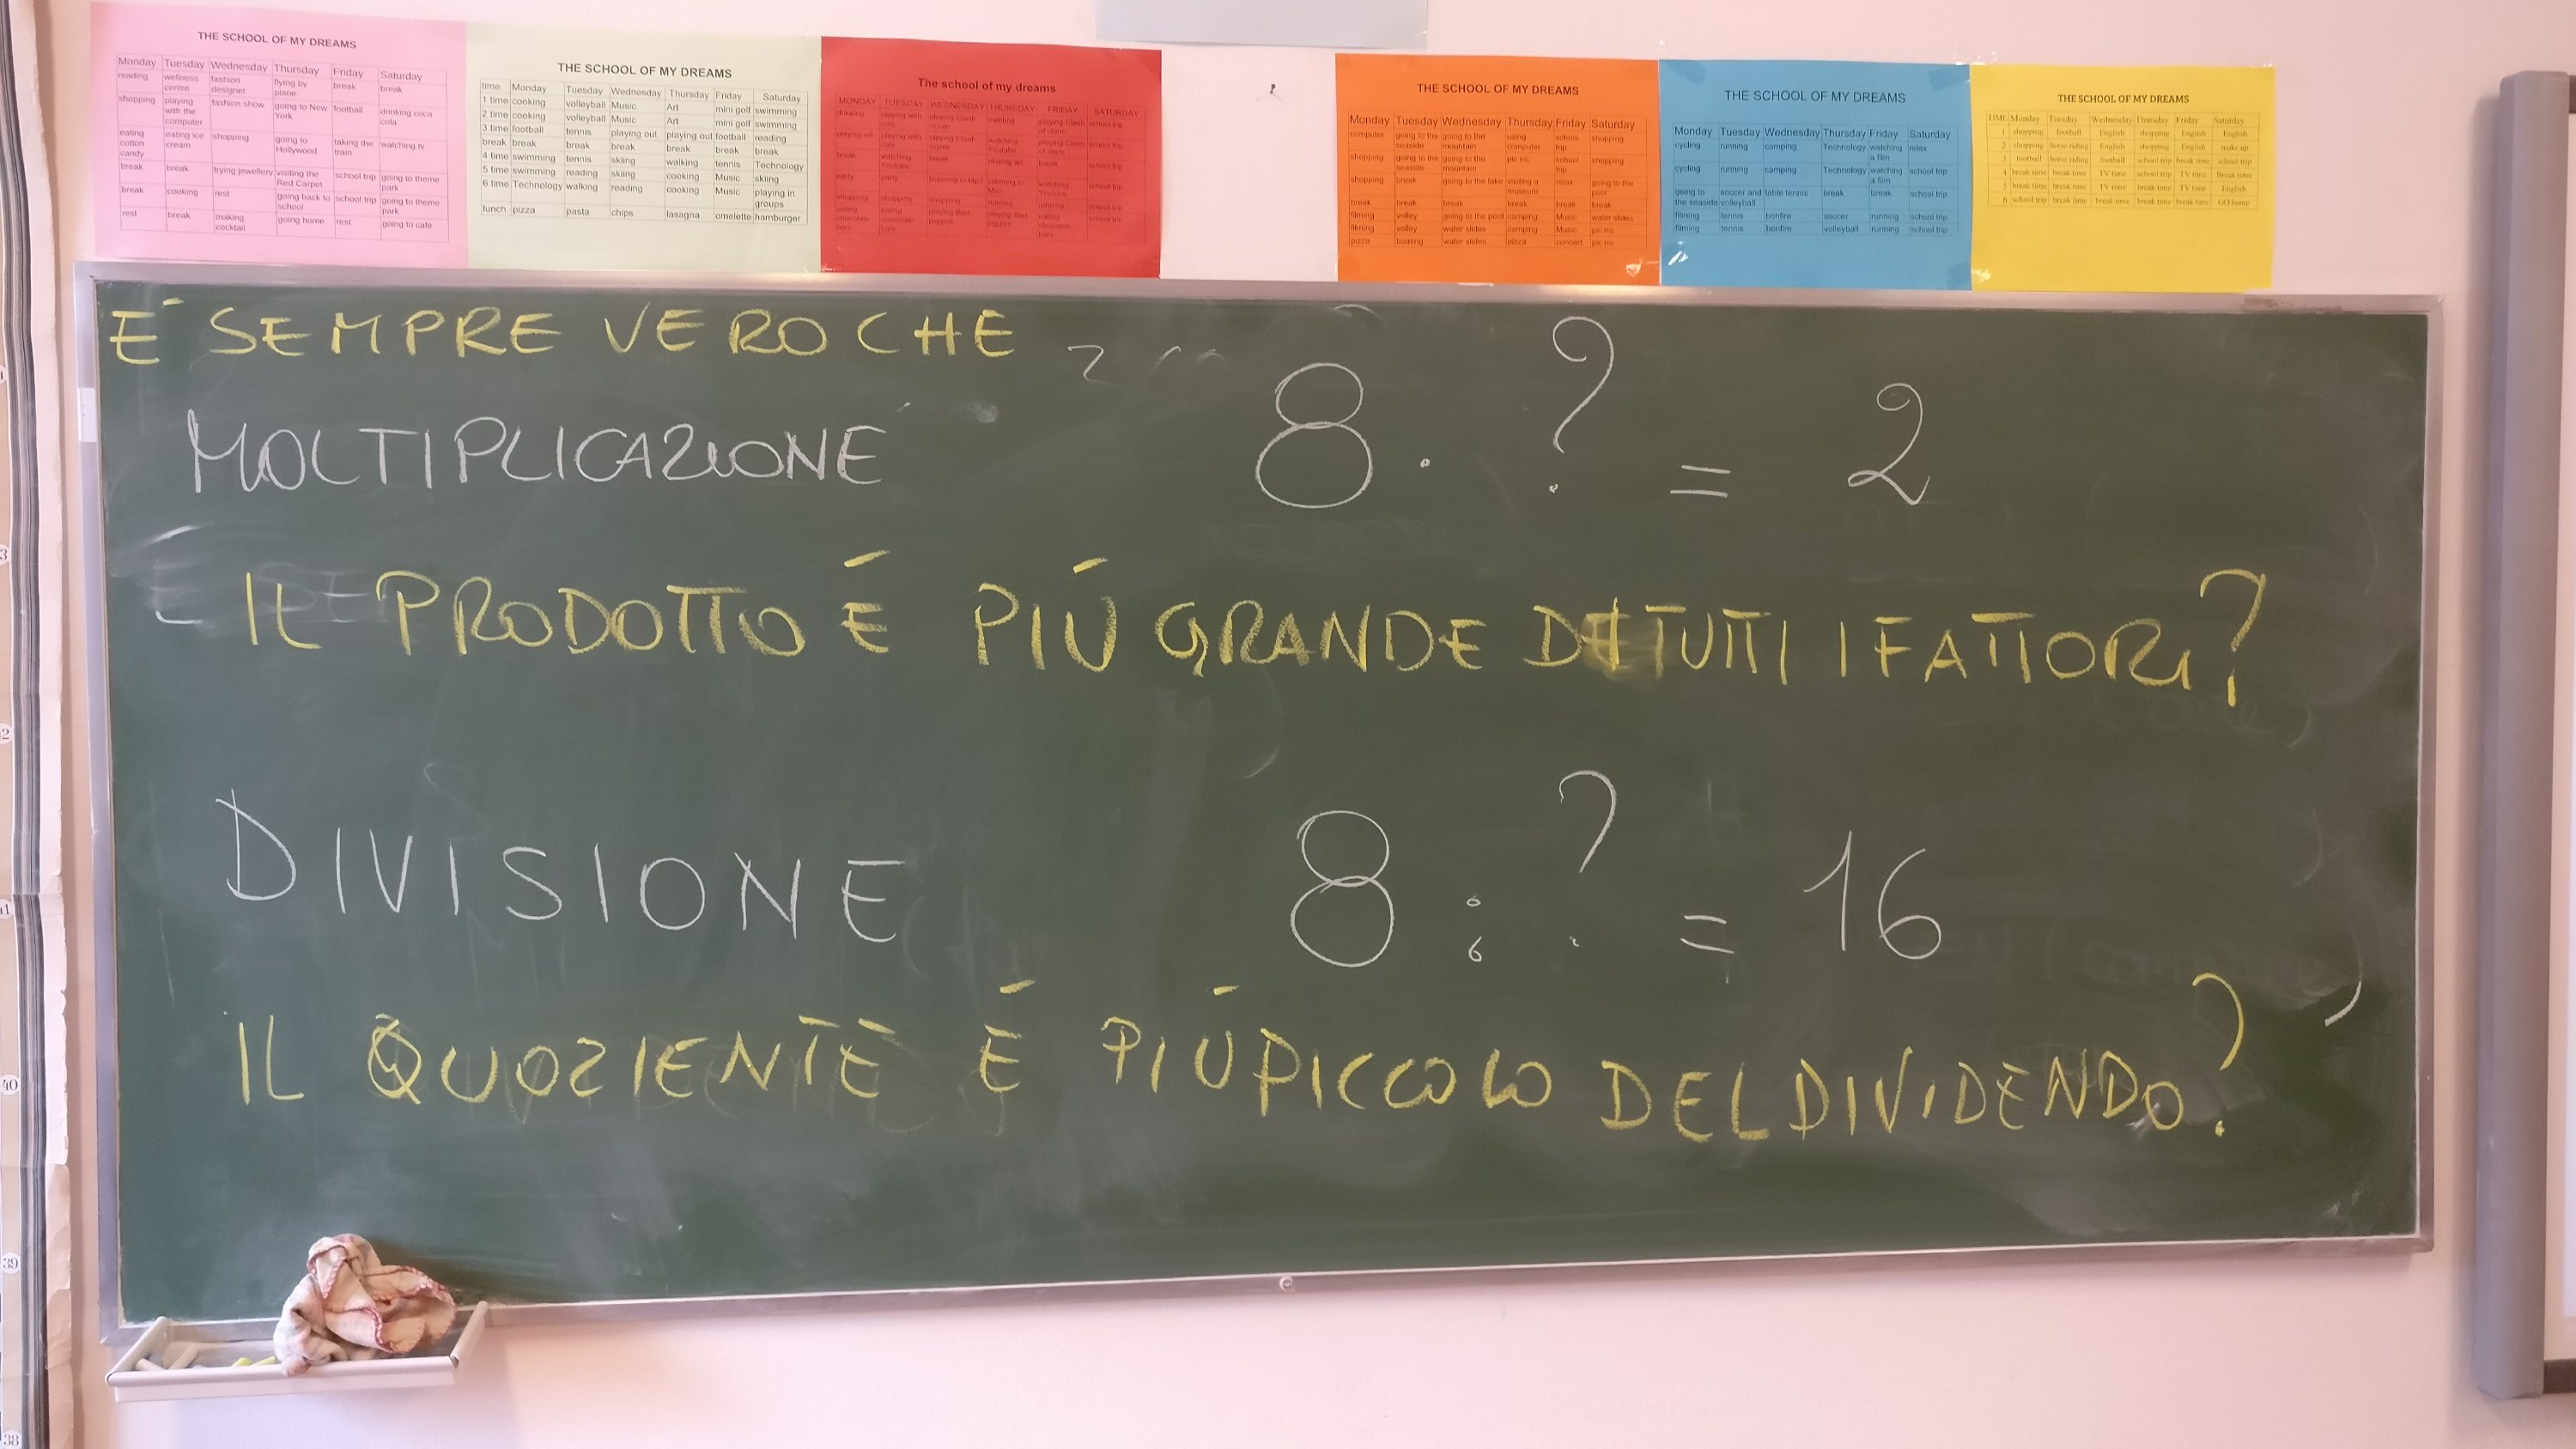 THE SCHOOL OF MY DREAMS
Monday Tuesday Wednesday Thursday Friday Saturday
reading wellness centre fashion designer flying by plane break break
shopping playing with the computer fashion show going to New York football drinking coca cola
eating cotton candy eating ice cream shopping going to Hollywood taking the train watching tv
break break trying jewellery visiting the Red Carpet school trip going to theme park
break cooking rest going back to school school trip going to theme park
rest break making cocktail going home rest going to cafè
THE SCHOOL OF MY DREAMS
time Monday Tuesday Wednesday Thursday Friday Saturday
1 time cooking volleyball Music Art mini golf swimming
2 time cooking volleyball Music Art mini golf swimming
3 time football tennis playing out playing out football reading
break break break break break break break
4 time swimming tennis skiing walking tennis Technology
5 time swimming reading skiing cooking Music skiing
6 time Technology walking reading cooking Music playing in groups
lunch pizza pasta chips lasagna omelette hamburger
The school of my dreams
MONDAY TUESDAY WEDNESDAY THURSDAY FRIDAY SATURDAY
THE SCHOOL OF MY DREAMS
Monday Tuesday Wednesday Thursday Friday Saturday
computer going to the seaside going to the mountain using computer school trip shopping
shopping going to the seaside going to the mountain pic nic school trip shopping
shopping break going to the lake visiting a museum relax going to the pool
break break break break break break
filming volley going to the pool camping Music water slides
filming volley water slides camping Music pic nic
pizza boating water slides pizza concert pic nic
THE SCHOOL OF MY DREAMS
Monday Tuesday Wednesday Thursday Friday Saturday
cycling running camping Technology watching a film relax
cycling running camping Technology watching a film school trip
going to the seaside soccer and volleyball table tennis break break school trip
filming tennis bonfire soccer running school trip
filming tennis bonfire volleyball running school trip
THE SCHOOL OF MY DREAMS
TIME Monday Tuesday Wednesday Thursday Friday Saturday
1 shopping football English shopping English English
2 shopping horse riding English shopping English make up
3 football horse riding football school trip break time school trip
4 break time break time TV time school trip TV time Break time
5 break time break time TV time break time TV time English
6 school trip break time break time break time break time GO home
É SEMPRE VERO CHE
MOLTIPLICAZIONE 8 · ? = 2
- IL PRODOTTO É PIÚ GRANDE DI TUTTI I FATTORI?
DIVISIONE 8 : ? = 16
IL QUOZIENTE É PIÚ PICCOLO DEL DIVIDENDO?